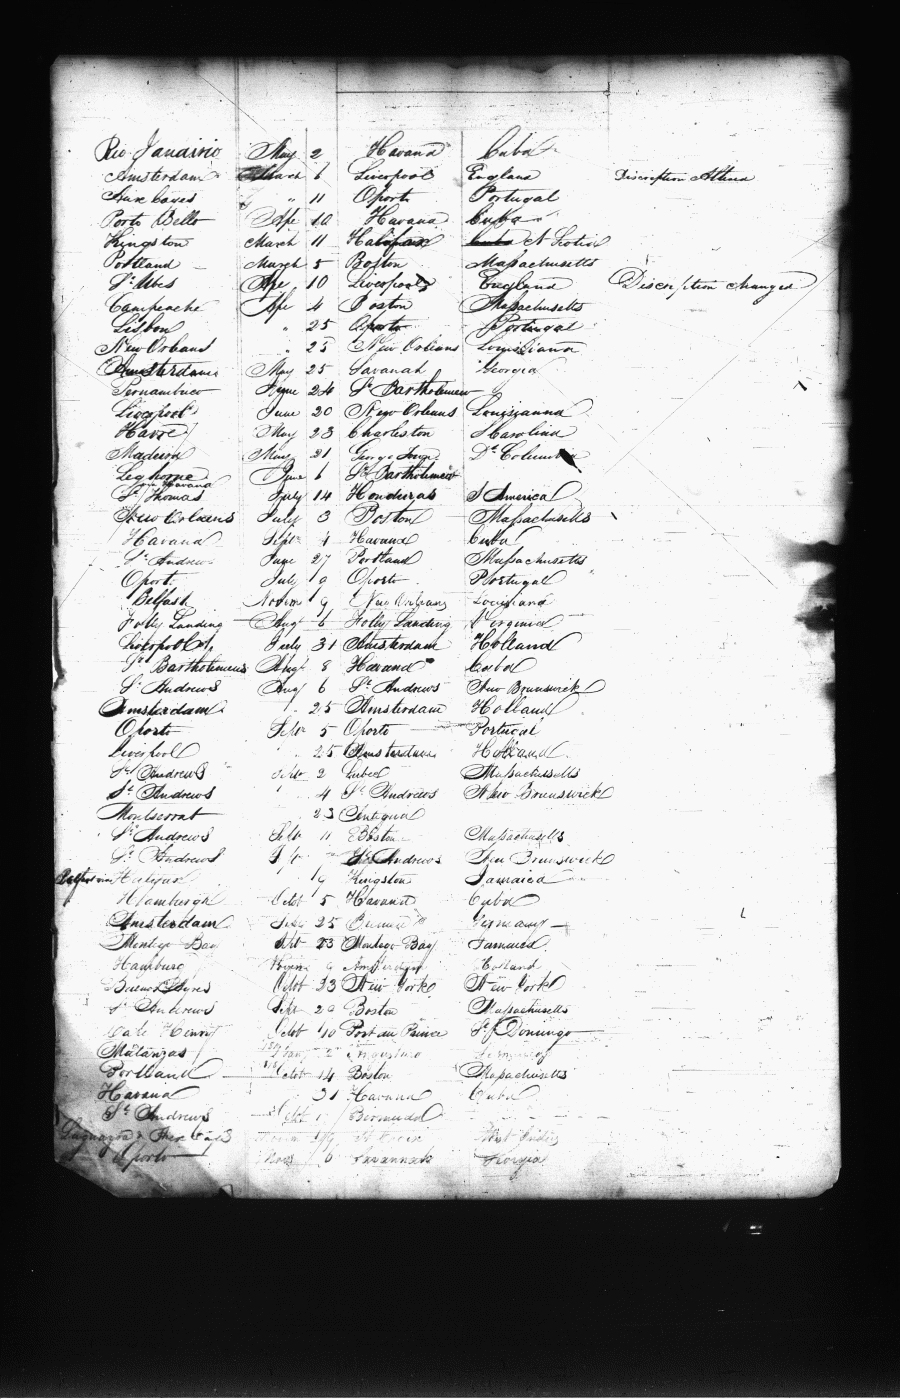 Rio Janairio May 2 Havana Cuba
Amsterdam March 6 Liverpool England Discription Altered
Aux Cayes " 11 Oporto Portugal
Porto Bello Apr 10 Havana Cuba
Kingston March 11 Halifax Cuba N Scotia
Portland March 5 Boston Massachusetts
St Ubes Apr 10 Liverpool England Discription changed
Campeache Apr 4 Boston Massachusetts
Lisbon " 25 Oporto Portugal
New Orleans " 25 New Orleans Louisiana
Amsterdam May 25 Savanah Georgia
Pernambuco June 24 St Bartholemew
Liverpool June 20 New Orleans Louisianna
Havre May 23 Charleston S Carolina
Madeira May 21 George Town Dt Columbia
Leghorne June 6 St Bartholemew
from Havana
St Thomas July 14 Honduras S America
New Orleans July 3 Boston Massachusetts
Havana Sept 4 Havana Cuba
St Andrews June 27 Portland Massachusetts
Oporto July 9 Oporto Portugal
Belfast 9 New Orleans Louisiana
Folly Landing Aug 6 Folly Landing Virginia
Liverpool July 31 Amsterdam Holland
St Bartholemews Augt 8 Havana Cuba
St Andrews Aug 6 St Andrews New Brunswick
Amsterdam " 25 Amsterdam Holland
Oporto Sept 5 Oporto Portugal
Liverpool " 25 Amsterdam Holland
St Andrews Sept 2 Lubec Massachusetts
St Andrews " 4 St Andrews New Brunswick
Montserrat 23 Antigua
St Andrews Sept 11 Boston Massachusetts
St Andrews St Andrews New Brunswick
Halifax 19 Kingston Jamaica
Hamburgh Octot 5 Havana Cuba
Amsterdam Sept 25 Germany
Montego Bay Sept 23 Montego Bay Jamaica
Hamburg 9 Amsterdam Holland
Buenos Ayres Octot 23 New York New York
St Andrews Sept 20 Boston Massachusetts
Cape Henry Octot 10 Port au Prince St Domingo
Matanzas
Portland Octot 14 Boston Massachusetts
Havana 31 Havana Cuba
St Andrews Octot Bermuda
Laguayra & Aux Cays St Croix West Indies
Oporto Nov 6 Savannah Georgia